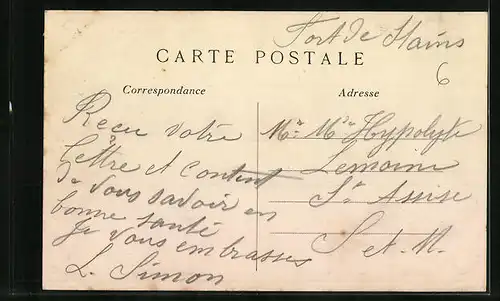 Fort de Stains
6
CARTE POSTALE
Correspondance
Reçu votre
Lettre et content
de vous savoir en
bonne santé
Je vous embrasses
L. Simon
Adresse
Mr Mme Hypolyte
Lemoine
St Assise
S et M.